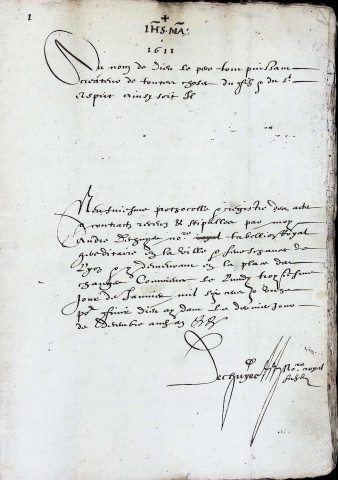 1
IHS. MA.
1611
Au nom de Dieu le pere tout puissant
createur de toutes choses du filz & du St
esprit ainsi soit il
Neufiesme prothocolle & registre des actes
& contractz receus & stipulles par moy
Andre Dechuyes no.re royal tabellion royal
hereditaire en la ville & senechaucee de
Lyon & demeurant en la place des
changes Commence le lundy troysiesme
Jour de Janvier mil six cens & unze
po.r finir Dieu ay dant le dernier Jour
de Decembre aud. an
Dechuyes No.re royal